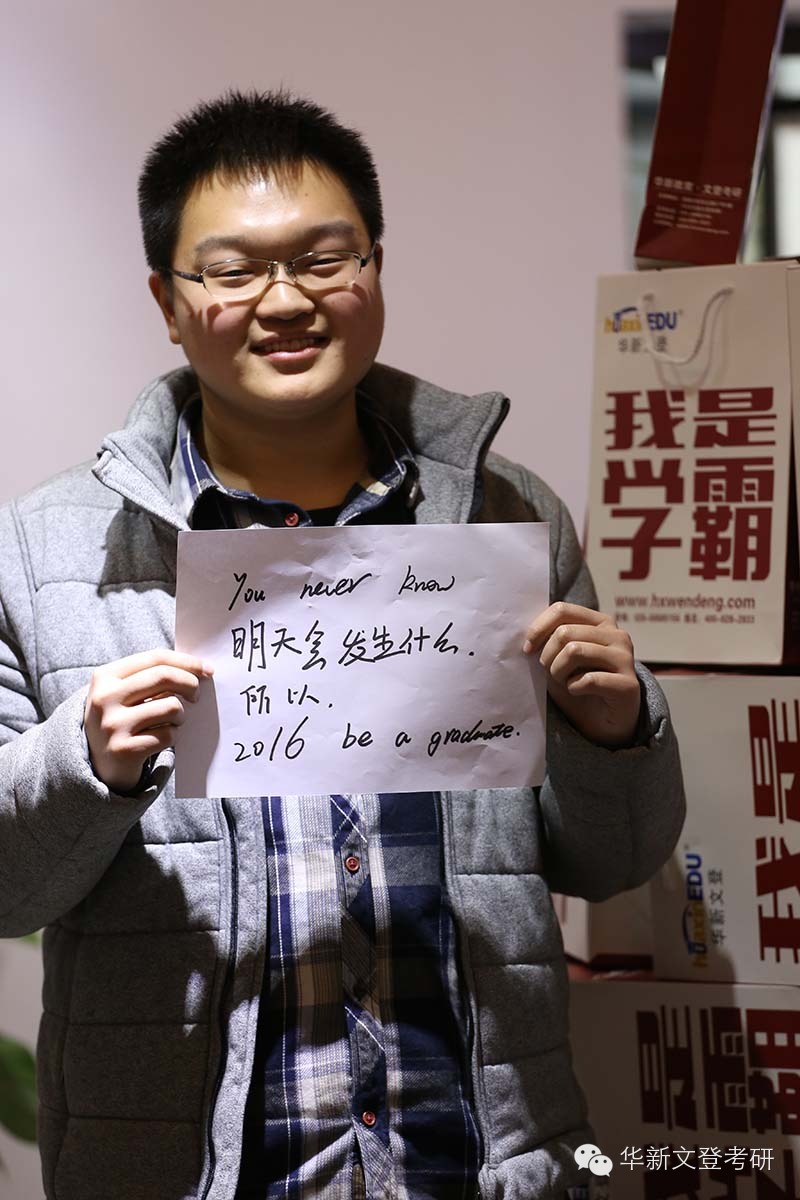 You never know
明天会发生什么.
所以.
2016 be a graduate.
华新教育·文登考研
huaxinEDU
华新文登
我是
学霸
子
www.hxwendeng.com
huaxinEDU
华新文登
我是
是霸
华新文登考研